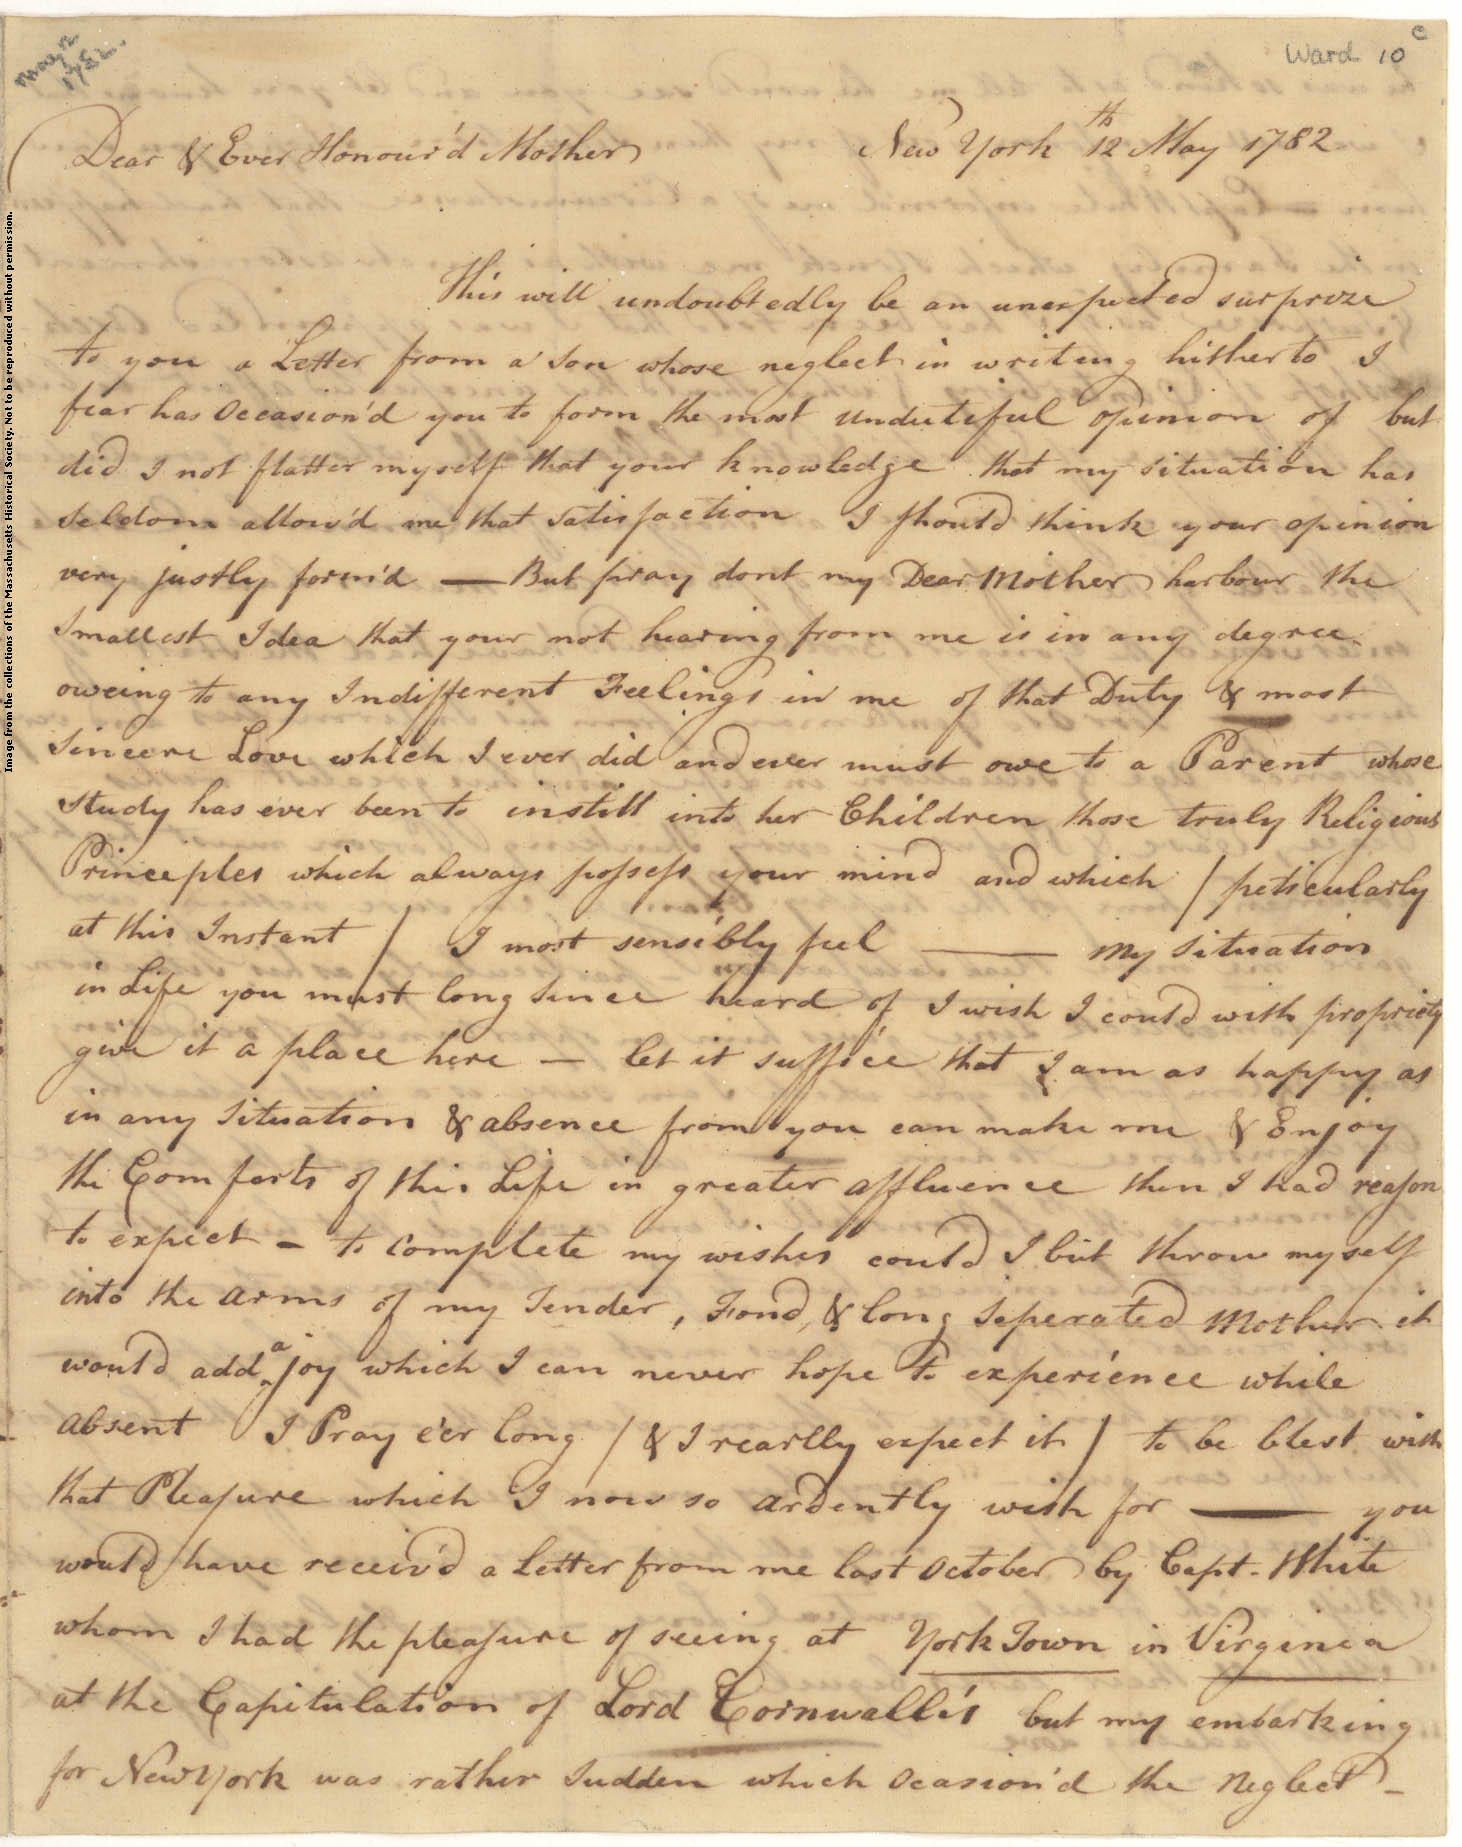 May 12
1782.
Ward 10 c
Dear & Ever Honour'd Mother New York 12th May 1782
This will undoubtedly be an unexpected surprize
to you a Letter from a Son whose neglect in writing hitherto I
fear has Occasion'd you to form the most undutiful opinion of but
did I not flatter myself that your knowledge that my situation has
seldom allow'd me that satisfaction I should think your opinion
very justly form'd — But pray dont my Dear Mother harbour the
Smallest Idea that your not hearing from me is in any degree
oweing to any Indifferent Feelings in me of that Duty & most
Sincere Love which I ever did and ever must owe to a Parent whose
study has ever been to instill into her Children those truly Religious
Principles which always possess your mind and which / peticularly
at this Instant / I most sensibly feel — My Situation
in Life you must long since heard of I wish I could with propriety
give it a place here — let it suffice that I am as happy as
in any Situation & absence from you can make me & Enjoy
the Comforts of this Life in greater affluence then I had reason
to expect – to complete my wishes could I but throw myself
into the arms of my Tender, Fond, & long Seperated Mother it
would add a joy which I can never hope to experience while
absent I Pray e'er long / & I rearlly expect it / to be blest with
that Pleasure which I now so ardently wish for — you
would have receiv'd a Letter from me last October by Capt. White
whom I had the pleasure of seeing at York Town in Virginia
at the Capitulation of Lord Cornwallis but my embarking
for New York was rather Sudden which Ocasion'd the Neglect –
Image from the collections of the Massachusetts Historical Society. Not to be reproduced without permission.